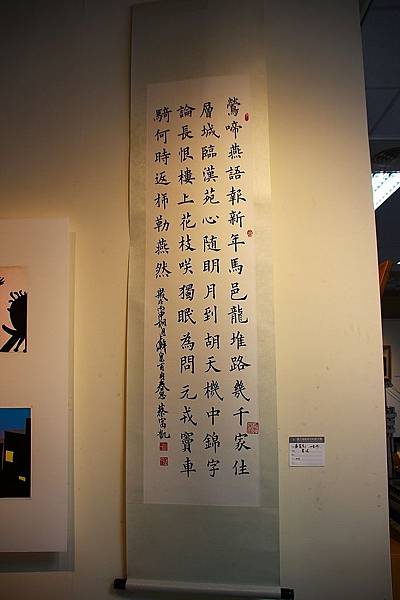 鶯啼燕語報新年馬邑龍堆路幾千家住
層城臨漢苑心隨明月到胡天機中錦字
論長恨樓上花枝咲獨眠為問元戎竇車
騎何時返旆勒燕然 歲在丙申 皇甫冉春思 蔡富凱